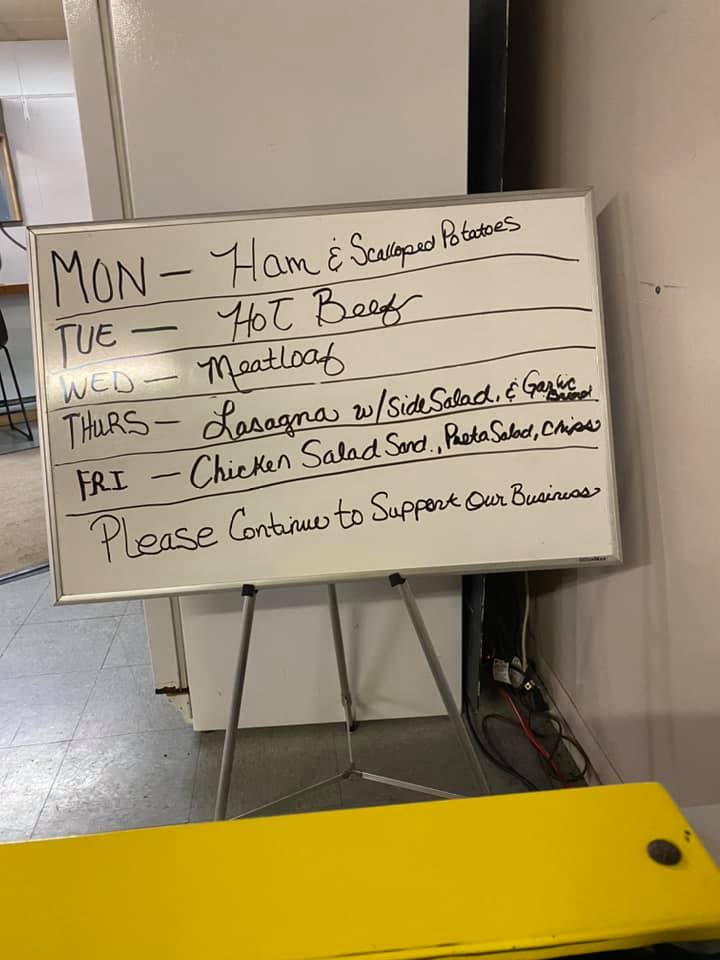 MON - Ham & Scalloped Potatoes
TUE - HOT Beef
WED - Meatloaf
THURS - Lasagna w/Side Salad, & Garlic Bread
FRI - Chicken Salad Sand., Pasta Salad, Chips
Please Continue to Support Our Business